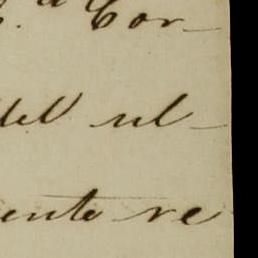 Cor-
del ul-
ente re